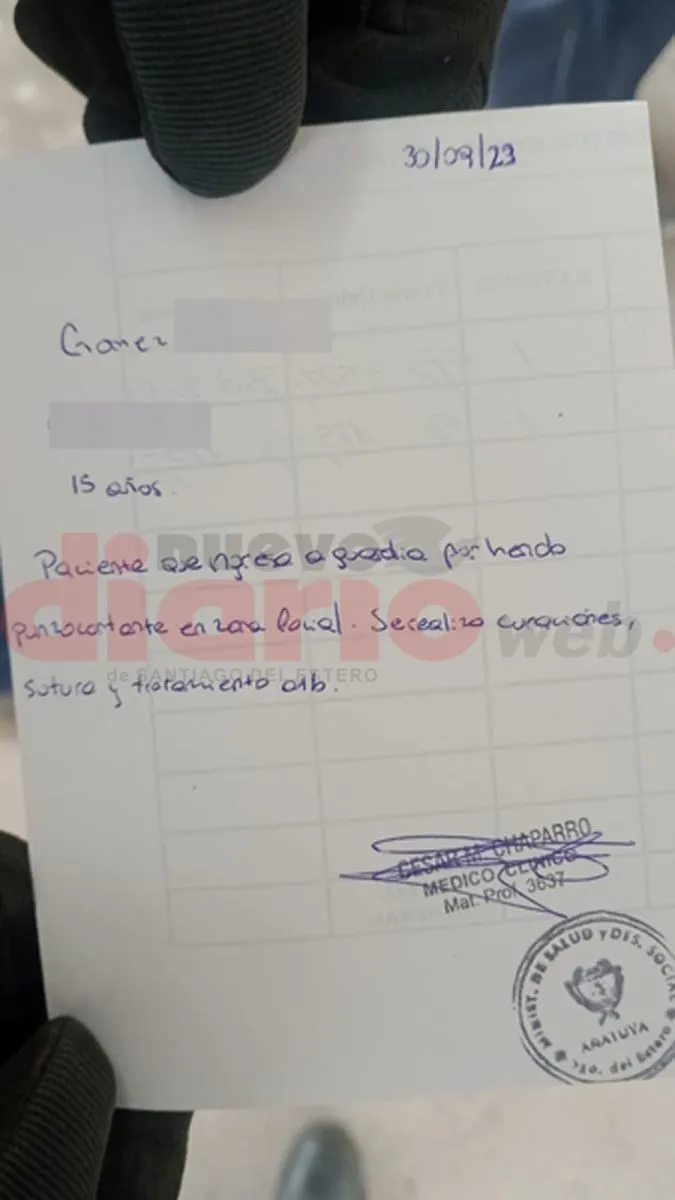 30/09/23
15 años.
Paciente que ingresa a guardia por herida
punzocortante en zona facial. Se realizo curaciones,
sutura y tratamiento atb.
nuevo
diario
web.
de SANTIAGO DEL ESTERO
CESAR M. CHAPARRO
MEDICO CLINICO
Mat. Prof. 3637
MINIST. DE SALUD Y DES. SOCIAL
AÑATUYA
Sgo. del Estero